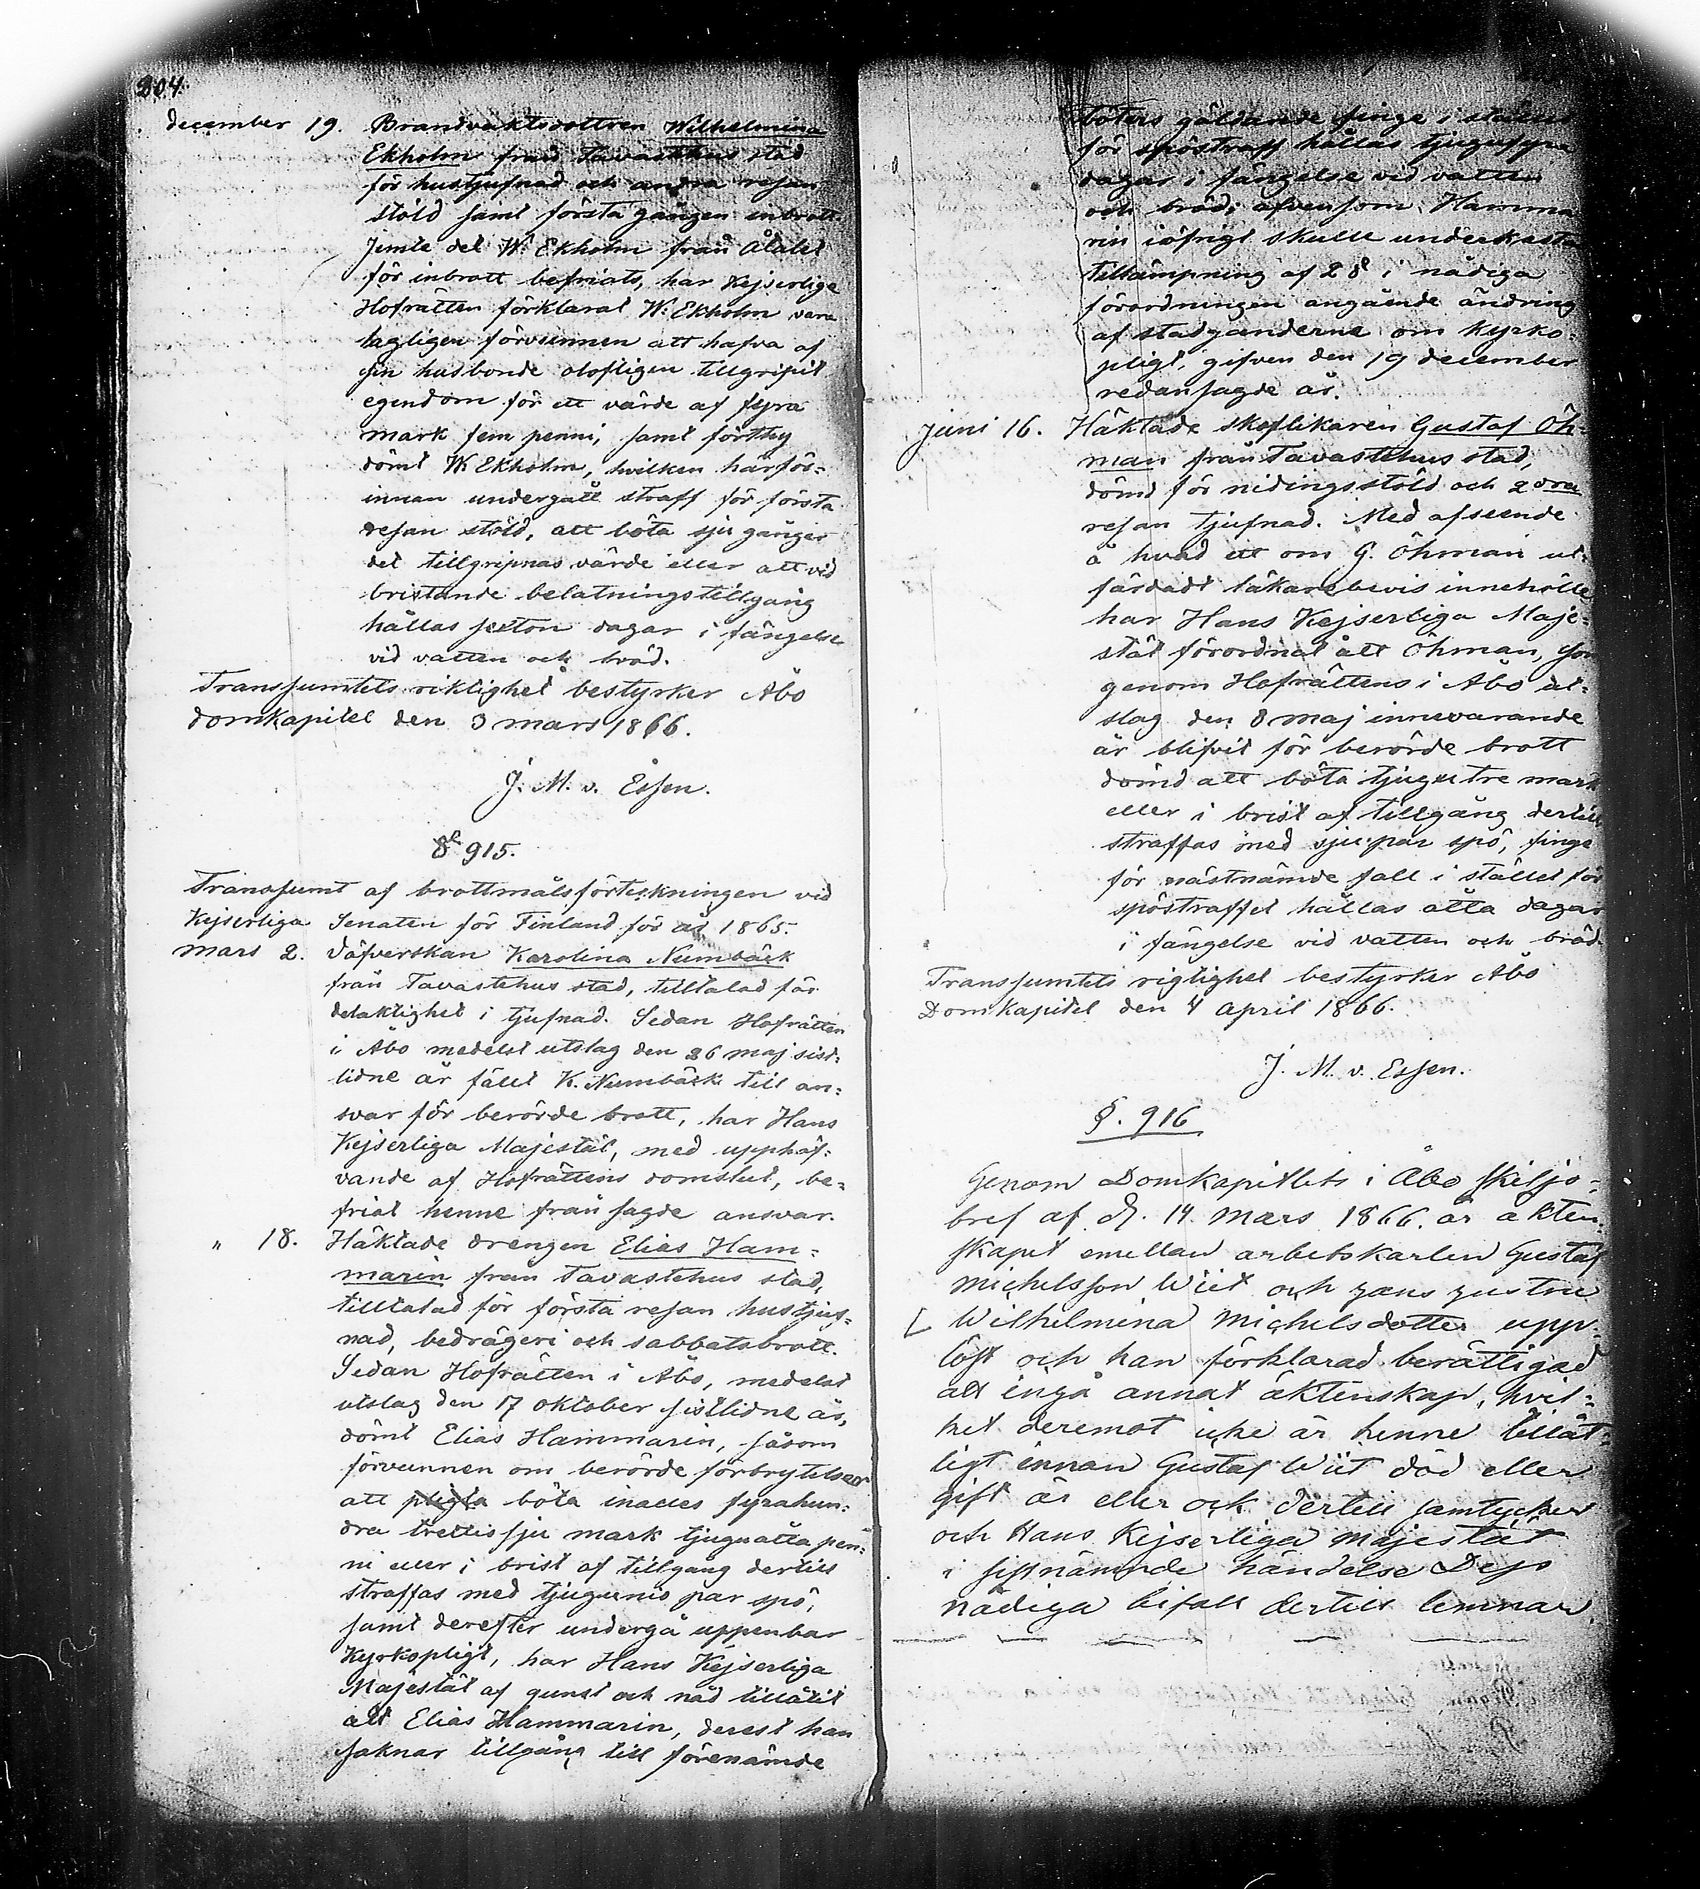 204.
december 19. Brandvaktsdottren Wilhelmina
Ekholm från Tavastehus stad
för hustjufnad och andra resan
stöld samt första gången inbrott.
Jemte det W. Ekholm från åtalet
för inbrott befriats, har Kejserliga
Hofrätten förklarat W. Ekholm vara
lagligen förvunnen att hafva af
sin husbonde olofligen tillgripit
egendom för ett värde af fyra
mark fem penni, samt förthy
dömt W. Ekholm, hvilken härför-
innan undergått straff för första
resan stöld, att böta sju gånger
det tillgripnas värde eller att vid
bristande betalningstillgång
hållas sexton dagar i fängelse
vid vatten och bröd.
Transsumtets riktighet bestyrker Åbo
domkapitel den 3 mars 1866.
J. M. v. Essen.
§ 915.
Transsumt af brottmålsförteckningen vid
Kejserliga Senaten för Finland för år 1865.
mars 2. Väfverskan Karolina Numbäck
från Tavastehus stad, tilltalad för
delaktighet i tjufnad. Sedan Hofrätten
i Åbo medelst utslag den 26 maj sist-
lidne år fällt K. Numbäck till an-
svar för berörde brott, har Hans
Kejserliga Majestät, med upphäf-
vande af Hofrättens domslut, be-
friat henne från sagde ansvar.
" 18. Häktade drengen Elias Ham-
marin från Tavastehus stad,
tilltalad för första resan hustjuf-
nad, bedrägeri och sabbatsbrott.
Sedan Hofrätten i Åbo, medelst
utslag den 17 oktober sistlidne år,
dömt Elias Hammarin, såsom
förvunnen om berörde förbrytelser
att pligta böta inalles fyrahun-
dra trettisju mark tjuguåtta pen-
ni eller i brist af tillgang dertill
straffas med tjugunio par spö,
samt derefter undergå uppenbar
Kyrkopligt, har Hans Kejserliga
Majestät af gunst och nåd tillåtit
att Elias Hammarin, derest han
saknar tillgång till förenämde
böters gäldande finge i stället
för spöstraff hållas tjugufyra
dagar i fängelse vid vatten
och bröd; äfvensom Hamma
rin iöfrigt skulle underkastas
tillämpning af 2 § i nådiga
förordningen angående ändring
af stadganderne om kyrko-
pligt, gifven den 19 december
redansagde år.
juni 16. Häktade skoflikaren Gustaf Öh-
man från Tavastehus stad,
dömd för nidingsstöld och 2dra
resan tjufnad. Med afseende
å hvad ett om G. Öhman ut-
färdadt läkarebevis innehölle
har Hans Kejserliga Maje-
stät förordnat att Öhman, som
genom Hofrättens i Åbo ut-
slag den 8 maj innevarande
år blifvit för berörde brott
dömd att böta tjugutre mark
eller i brist af tillgång dertill
straffas med sju par spö, finge
för nästnämde fall i stället för
spöstraffet hållas åtta dagar
i fängelse vid vatten och bröd.
Transsumtets rigtighet bestyrker Åbo
Domkapitel den 4 april 1866.
J. M. v. Essen.
§. 916
Genom Domkapitlets i Åbo skiljo-
bref af d. 14 Mars 1866. är äkten-
skapet emellan arbetskarlen Gustaf
Michelsson Wiit och hans hustru
Wilhelmina Michelsdotter upp-
löst och han förklarad berättigad
att ingå annat äktenskap, hvil-
ket deremot icke är henne tillåt-
ligt innan Gustaf Wiit död eller
gift är eller ock dertill samtycker
och Hans Kejserliga Majestät
i sistnämnde händelse Dess
nådiga bifall dertill lemnar.